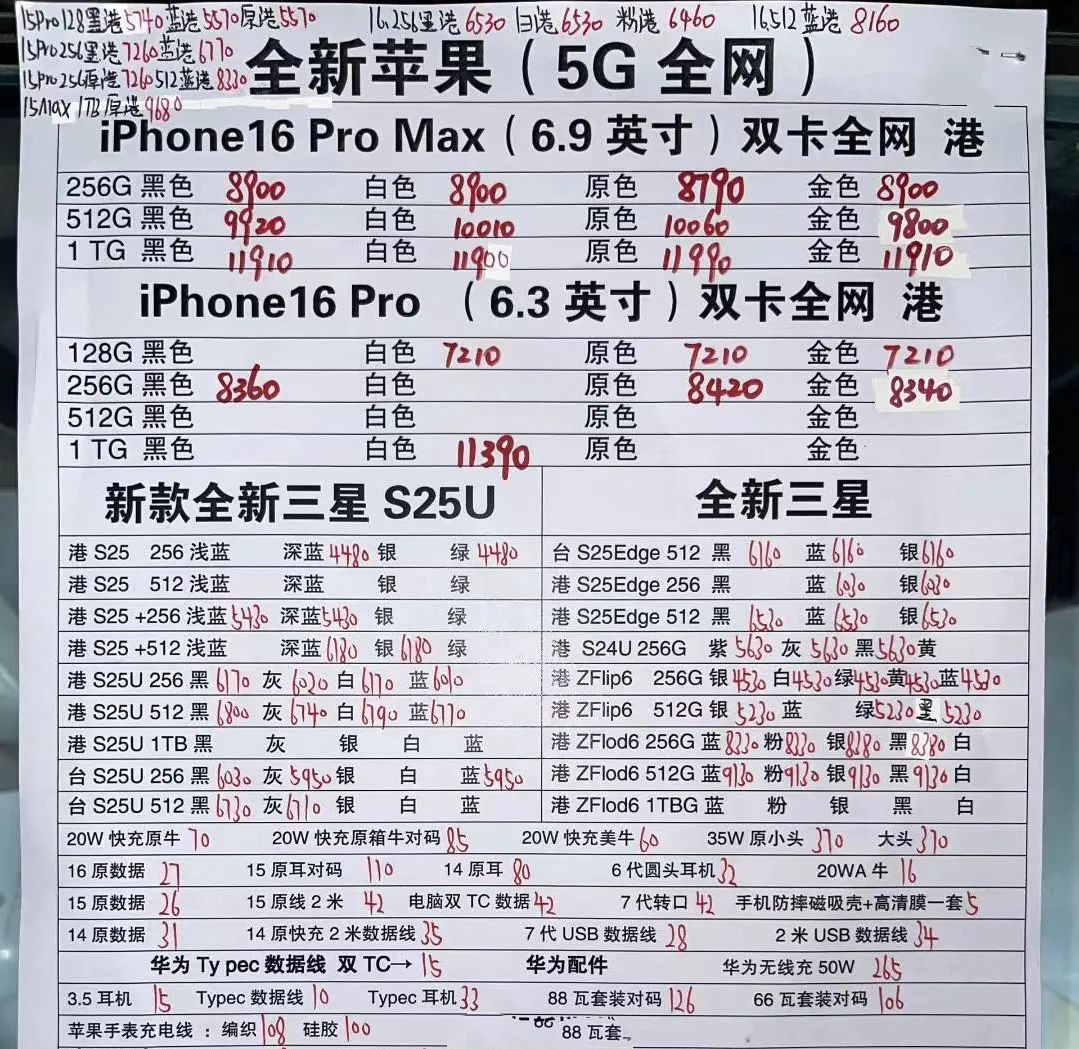 15Pro128黑港5740蓝港5570原港5570 16,256黑港6530 白港6530 粉港6460 16,512蓝港8160
15Pro256黑港7260蓝港6770
15Pro256原港7260 512蓝港8330
15Max 1TB原港9680
全新苹果(5G 全网)
iPhone16 Pro Max(6.9 英寸)双卡全网 港
256G 黑色 8900 白色 8900 原色 8790 金色 8900
512G 黑色 9920 白色 10010 原色 10060 金色 9800
1 TG 黑色 11910 白色 11900 原色 11990 金色 11910
iPhone16 Pro (6.3 英寸)双卡全网 港
128G 黑色 白色 7210 原色 7210 金色 7210
256G 黑色 8360 白色 原色 8420 金色 8340
512G 黑色 白色 原色 金色
1 TG 黑色 白色 11390 原色 金色
新款全新三星 S25U
港 S25 256 浅蓝 深蓝4480 银 绿 4480
港 S25 512 浅蓝 深蓝 银 绿
港 S25 +256 浅蓝5430 深蓝5430 银 绿
港 S25 +512 浅蓝 深蓝6180 银 6180 绿
港 S25U 256 黑 6170 灰 6020 白 6170 蓝6010
港 S25U 512 黑 6800 灰 6740 白 6790 蓝6770
港 S25U 1TB 黑 灰 银 白 蓝
台 S25U 256 黑 6030 灰 5950 银 白 蓝5950
台 S25U 512 黑 6730 灰6710 银 白 蓝
全新三星
台 S25Edge 512 黑 6160 蓝 6160 银6160
港 S25Edge 256 黑 蓝 6030 银6030
港 S25Edge 512 黑 6530 蓝 6530 银6530
港 S24U 256G 紫 5630 灰 5630 黑5630黄
港 ZFlip6 256G 银4530 白4530绿4530黄4530蓝4530
港 ZFlip6 512G 银 5230 蓝 绿5230 黑 5230
港 ZFlod6 256G 蓝 8330 粉8330 银8380 黑 8380 白
港 ZFlod6 512G 蓝9130 粉9130 银9130 黑 9130 白
港 ZFlod6 1TBG 蓝 粉 银 黑 白
20W 快充原牛 70 20W 快充原箱牛对码 85 20W 快充美牛 60 35W 原小头 370 大头 370
16 原数据 27 15 原耳对码 110 14 原耳 80 6 代圆头耳机 32 20WA 牛 16
15 原数据 26 15 原线 2 米 42 电脑双 TC 数据 42 7 代转口 42 手机防摔磁吸壳+高清膜一套 5
14 原数据 31 14 原快充 2 米数据线 35 7 代 USB 数据线 28 2 米 USB 数据线 34
华为 Ty pec 数据线 双 TC→ 15 华为配件 华为无线充 50W 265
3.5 耳机 15 Typec 数据线 10 Typec 耳机 33 88 瓦套装对码 126 66 瓦套装对码 106
苹果手表充电线 : 编织 108 硅胶 100 88 瓦套